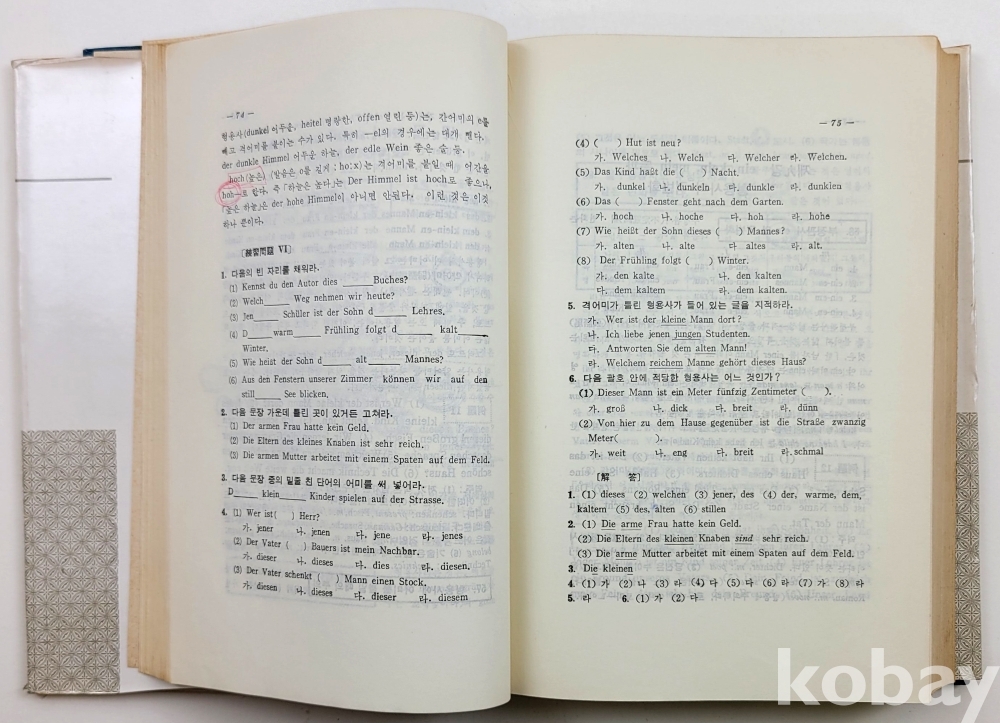 — 74 —
형용사(dunkel 어두운, heitel 명랑한, offen 열린 등)는, 간어미의 e를
빼고 격어미를 붙이는 수가 있다. 특히 —el의 경우에는 대개 뺀다.
der dunkle Himmel 어두운 하늘, der edle Wein 좋은 술 등.
hoch(높은) (발음은 o를 길게 : ho:x)는 격어미를 붙일 때 어간을
hoh—로 한다. 즉 「하늘은 높다」는 Der Himmel ist hoch로 좋으나,
「높은 하늘」은 der hohe Himmel이 아니면 안된다. 이런 것은 이것
하나 뿐이다.
〔練習問題 Ⅵ〕
1. 다음의 빈 자리를 채워라.
(1) Kennst du den Autor dies____Buches?
(2) Welch____ Weg nehmen wir heute?
(3) Jen____ Schüler ist der Sohn d____ Lehres.
(4) D____ warm____ Frühling folgt d____ kalt____
Winter.
(5) Wie heist der Sohn d____ alt____ Mannes?
(6) Aus den Fenstern unserer Zimmer können wir auf den
still____ See blicken.
2. 다음 문장 가운데 틀린 곳이 있거든 고쳐라.
(1) Der armen Frau hatte kein Geld.
(2) Die Eltern des kleines Knaben ist sehr reich.
(3) Die armen Mutter arbeitet mit einem Spaten auf dem Feld.
3. 다음 문장 중의 밑줄 친 단어의 어미를 써 넣어라.
D____ klein____ Kinder spielen auf der Strasse.
4. (1) Wer ist( ) Herr?
가. jener 나. jenen 다. jene 라. jenes
(2) Der Vater ( ) Bauers ist mein Nachbar.
가. dieser 나. dieses 다. dies 라. diesen.
(3) Der Vater schenkt ( ) Mann einen Stock.
가. diesen 나. dieses 다. dieser 라. diesem
— 75 —
(4) ( ) Hut ist neu?
가. Welches 나. Welch 다. Welcher 라. Welchen.
(5) Das Kind haßt die ( ) Nacht.
가. dunkel 나. dunkeln 다. dunkle 라. dunklen
(6) Das ( ) Fenster geht nach dem Garten.
가. hoch 나. hoche 다. hoh 라. hohe
(7) Wie heißt der Sohn dieses ( ) Mannes?
가. alten 나. alte 다 altes 라. alt.
(8) Der Frühling folgt ( ) Winter.
가. den kalte 나. den kalten
다. dem kaltem 라. dem kalten.
5. 격어미가 틀린 형용사가 들어 있는 글을 지적하라.
가. Wer ist der kleine Mann dort?
나. Ich liebe jenen jungen Studenten.
다. Antworten Sie dem alten Mann!
라. Welchem reichem Manne gehört dieses Haus?
6. 다음 괄호 안에 적당한 형용사는 어느 것인가?
(1) Dieser Mann ist ein Meter fünfzig Zentimeter ( ).
가. groß 나. dick 다. breit 라. dünn
(2) Von hier zu dem Hause gegenüber ist die Straße zwanzig
Meter( ).
가. weit 나. eng 다. breit 라.schmal
〔解 答〕
1. (1) dieses (2) welchen (3) jener, des (4) der, warme, dem,
kaltem (5) des, alten (6) stillen
2. (1) Die arme Frau hatte kein Geld.
(2) Die Eltern des kleinen Knaben sind sehr reich.
(3) Die arme Mutter arbeitet mit einem Spaten auf dem Feld.
3. Die kleinen
4. (1) 가 (2) 나 (3) 라 (4) 다 (5) 다 (6) 라 (7) 가 (8) 라
5. 라 6. (1) 가 (2) 다
kobay